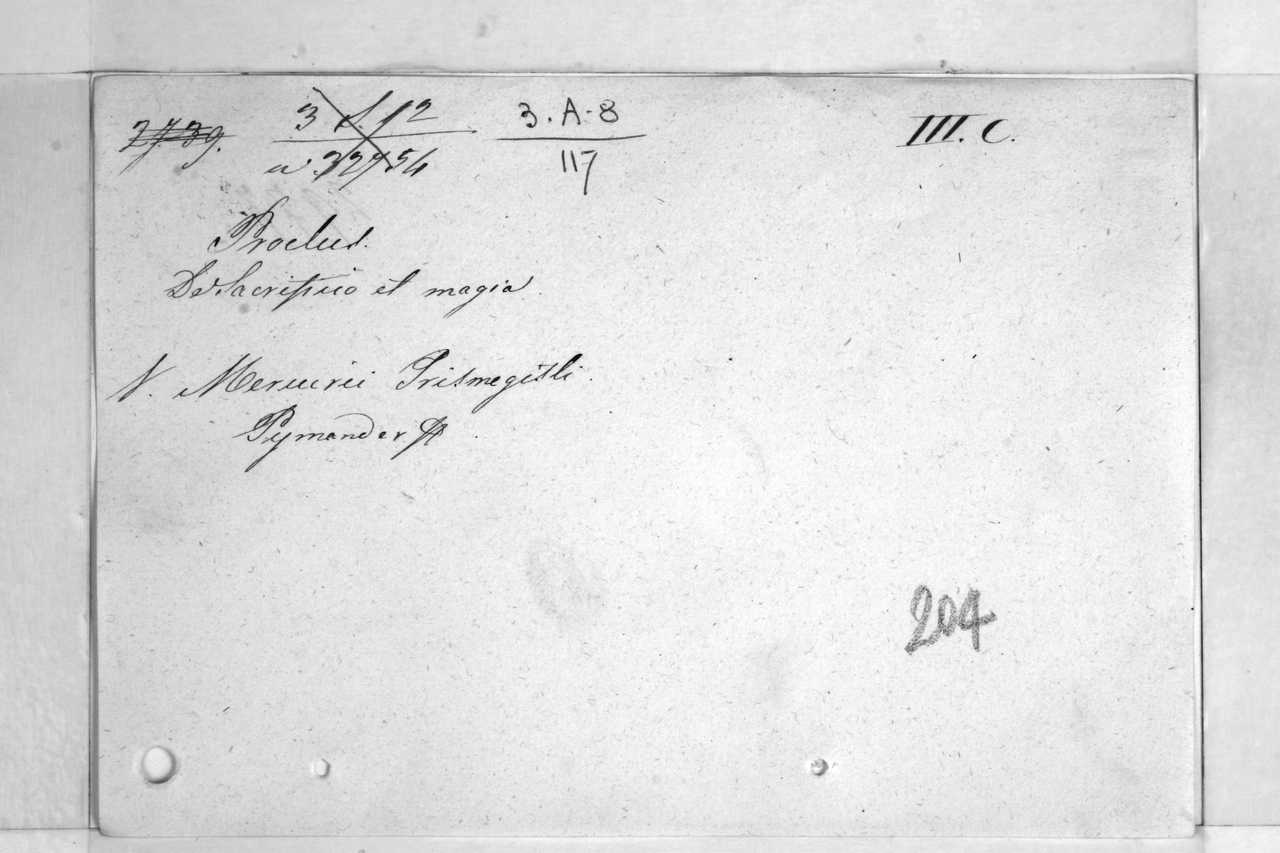 3.A-8
117
III. C.
Proclus.
De Sacrificio et magia
V. Mercurii Trismegisti
Pymander
204